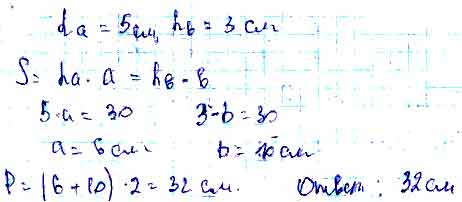 ha = 5 см, hв = 3 см
S = ha · a = hв · в
5 · a = 30 3 · b = 30
a = 6 см b = 10 см
P = (6 + 10) · 2 = 32 см. Ответ: 32 см